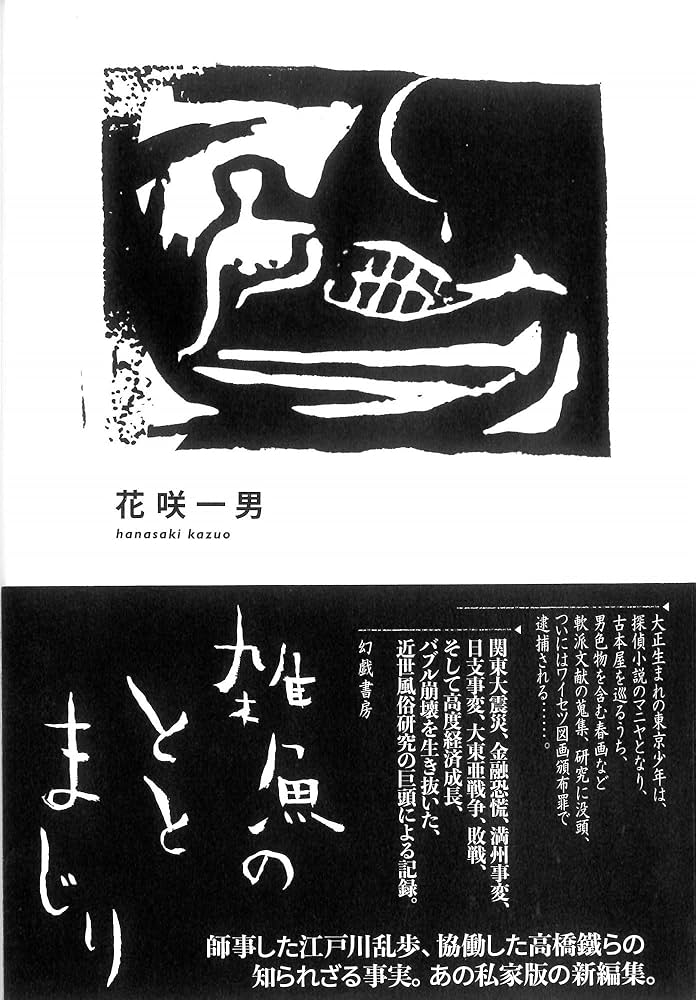 花咲一男
hanasaki kazuo
大正生まれの東京少年は、
探偵小説のマニヤとなり、
古本屋を巡るうち、
男色物を含む春画など
軟派文献の蒐集、研究に没頭、
ついにはワイセツ図画頒布罪で
逮捕される……。
関東大震災、金融恐慌、満州事変、
日支事変、大東亜戦争、敗戦、
そして高度経済成長、
バブル崩壊を生き抜いた、
近世風俗研究の巨頭による記録。
幻戯書房
雑魚の
とと
まじり
師事した江戸川乱歩、協働した高橋鐵らの
知られざる事実。あの私家版の新編集。